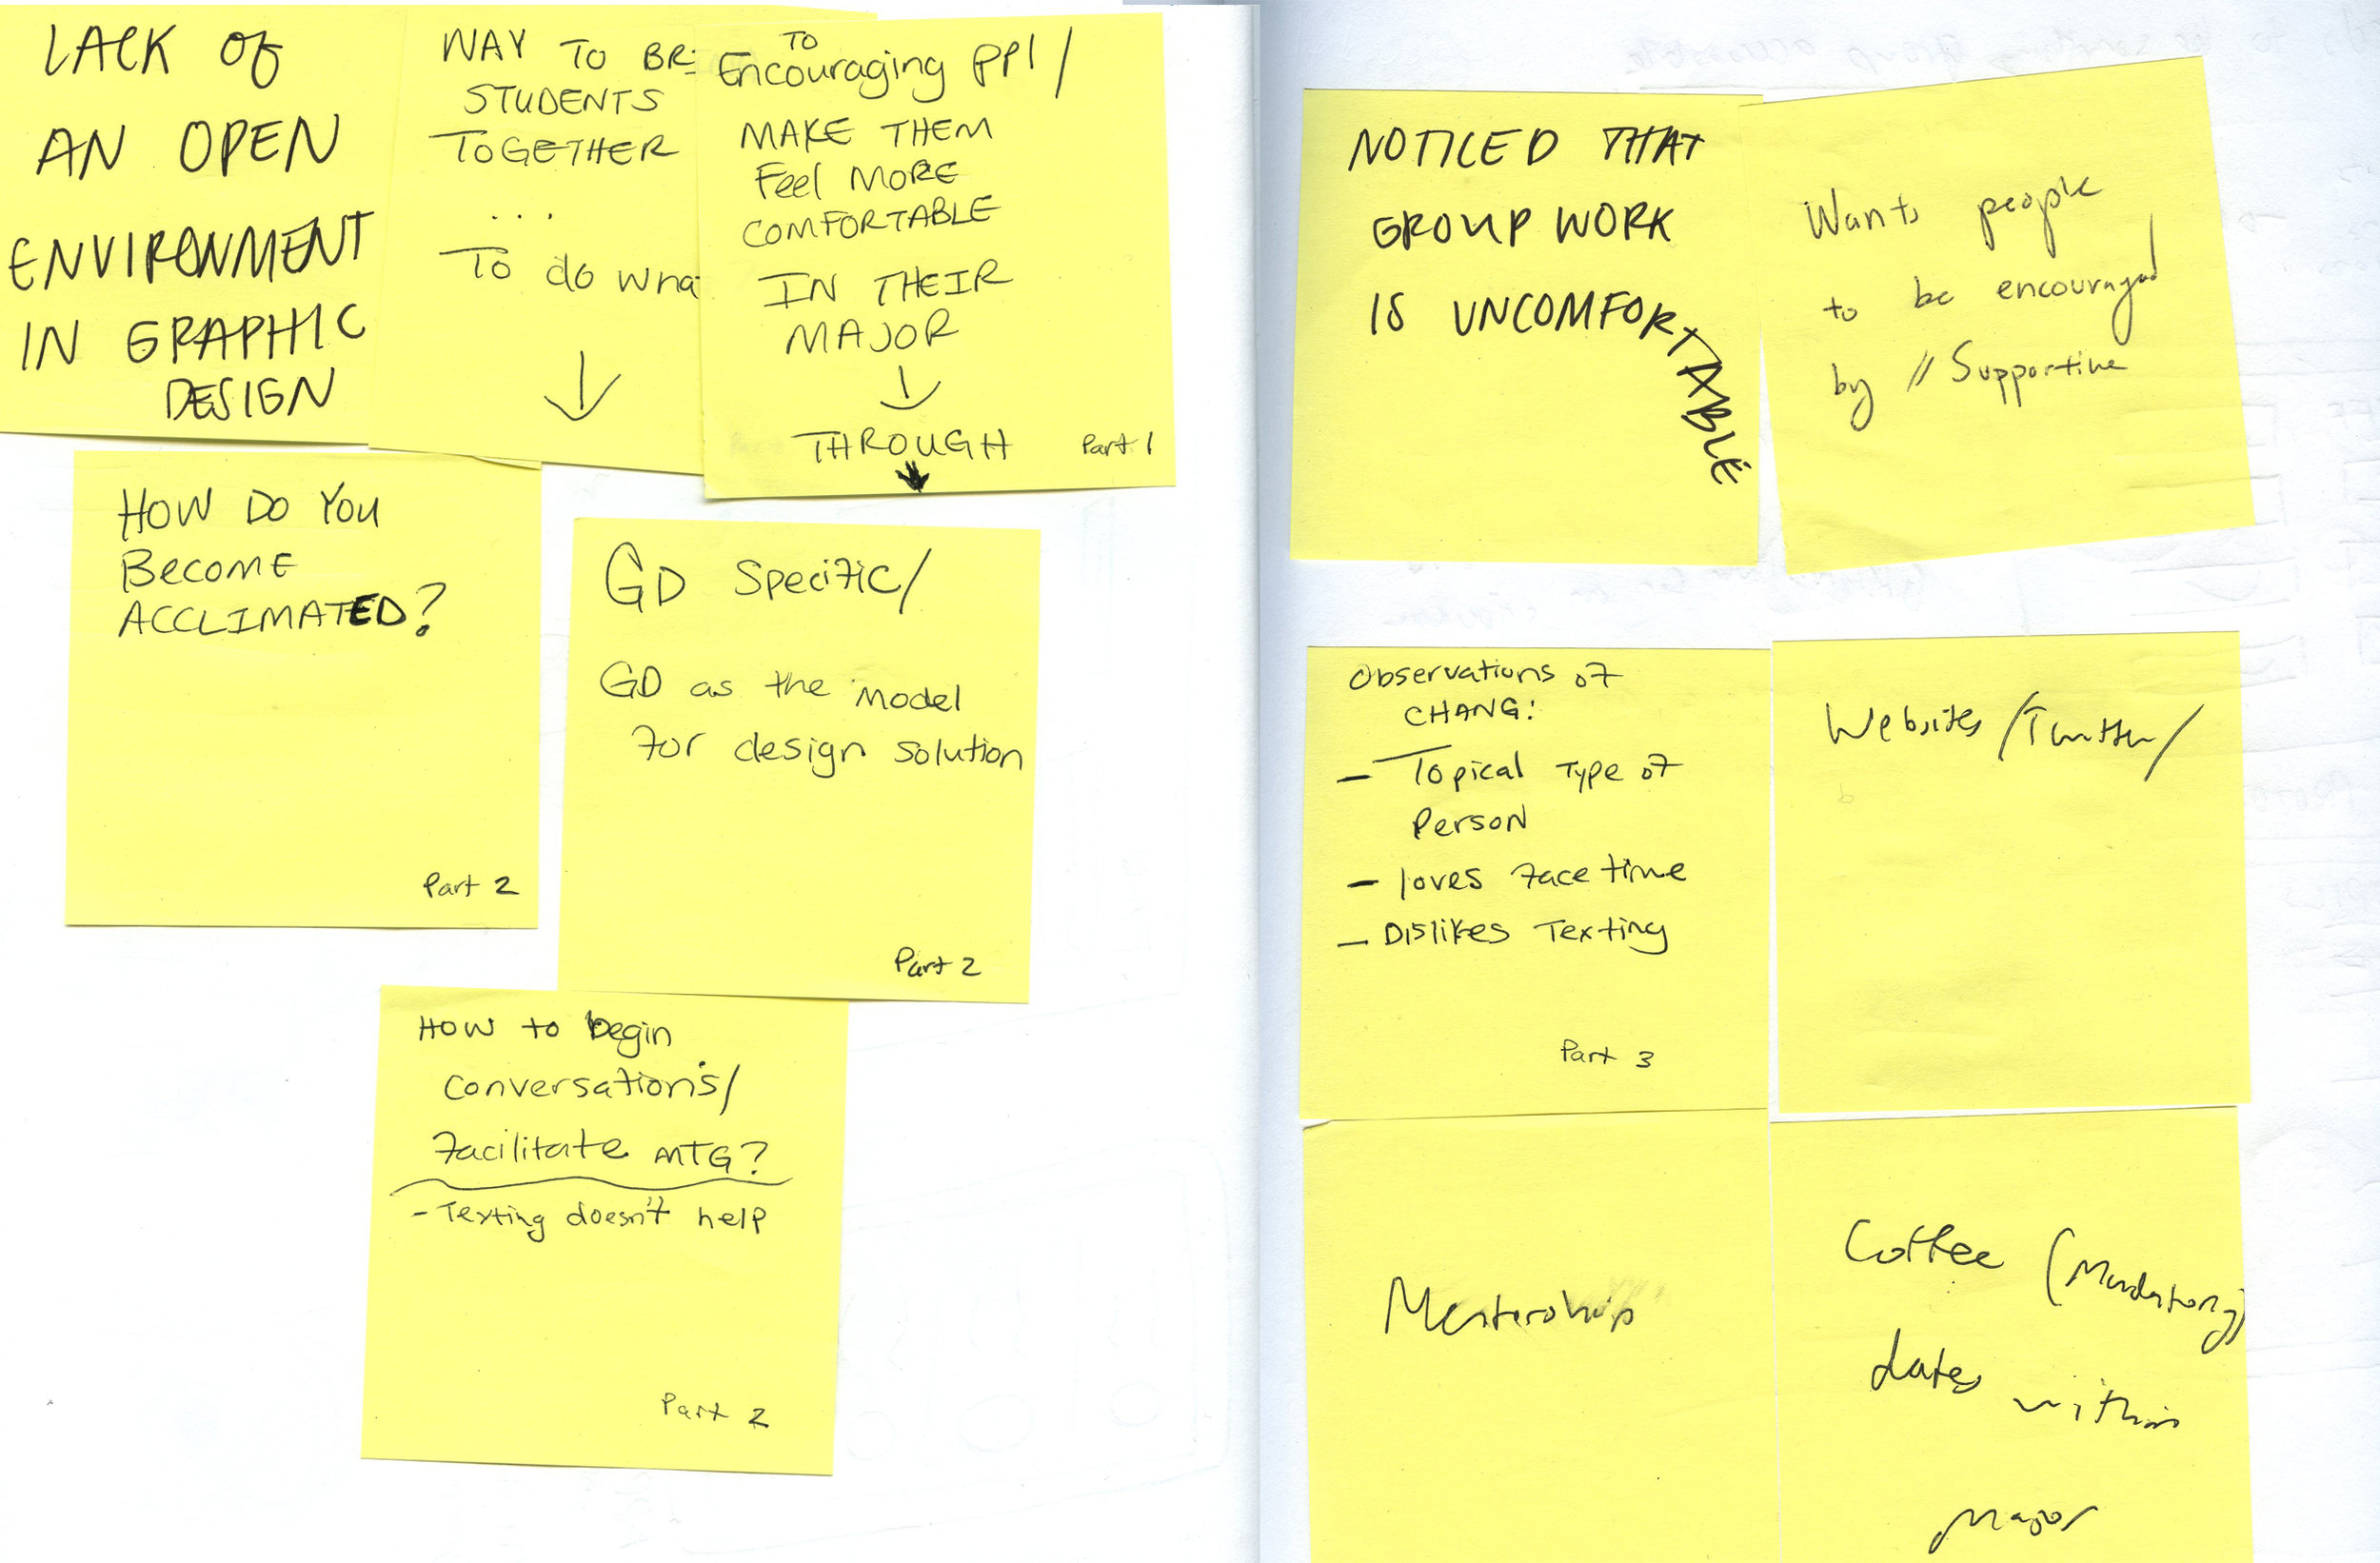 LACK OF
AN OPEN
ENVIRONMENT
IN GRAPHIC
DESIGN
WAY TO BR
STUDENTS
TOGETHER
...
To do wha
TO
Encouraging PPl /
MAKE THEM
Feel MORE
COMFORTABLE
IN THEIR
MAJOR
THROUGH
Part 1
HOW DO YOU
BECOME
ACCLIMATED?
Part 2
GD Specific/
GD as the model
for design solution
Part 2
How to begin
conversations/
facilitate MTG?
- Texting doesn't help
Part 2
NOTICED THAT
GROUP WORK
IS UNCOMFORTABLE
Wants people
to be encouraged
by // Supportive
Observations of
CHANG:
- Topical Type of
Person
- loves face time
- Dislikes Texting
Part 3
Websites/Twitter/
Mentorship
Coffee (Mandatory)
dates within
Major